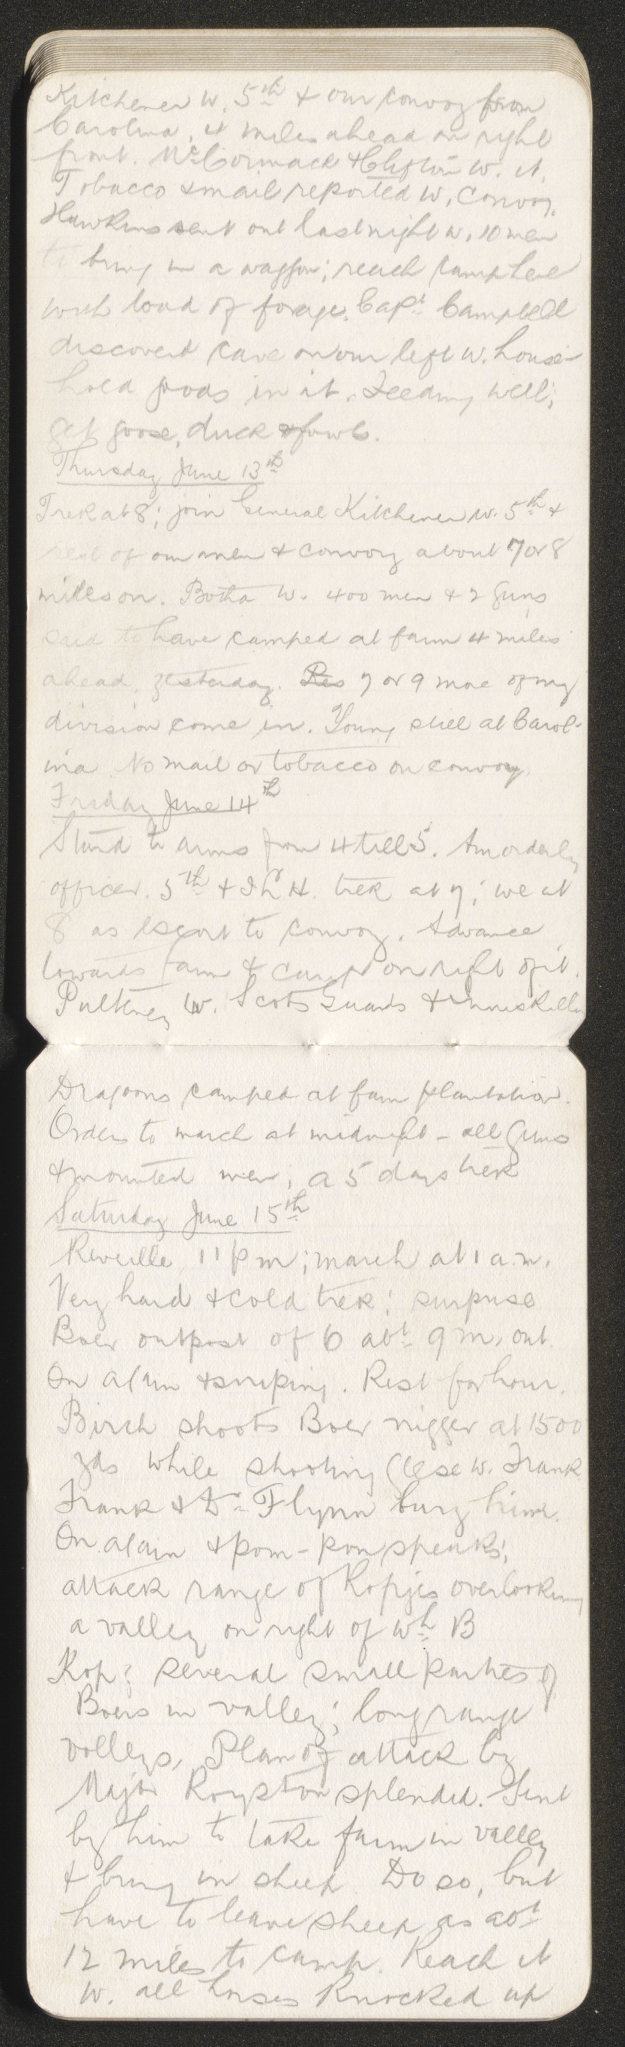 Kitchener w. 5th & our convoy from
Carolina, 4 miles ahead on right
front. McCormack & Clifton w. it.
Tobacco & mail reported w. convoy.
Hawkins sent out last night w. 10 men
to bring in a waggon; reach camp here
with load of forage. Capt Campbell
discovered cave on our left w. house-
hold goods in it. Feeding well;
get goose, duck & fowls.
Thursday June 13th
Trek at 8; join General Kitchener w. 5th &
rest of our men & convoy about 7 or 8
miles on. Botha w. 400 men & 2 guns
said to have camped at farm 4 miles
ahead, yesterday. 7 or 9 more of my
division come in. Young still at Carol-
ina. No mail or tobacco on convoy.
Friday June 14th
Stand to arms from 4 till 5. Am orderly
officer. 5th & I.L.H. trek at 7; we at
8 as escort to convoy. Advance
towards farm & camp on right of it.
Pulteney w. Scots Guards & Inniskilling
Dragoons camped at farm plantation.
Orders to march at midnight - all guns
& mounted men; a 5 days trek
Saturday June 15th
Reveille 11 pm; march at 1 a.m.
Very hard & cold trek; surprise
Boer outpost of 6 abt 9 m. out.
On again & sniping. Rest for hour.
Birch shoots Boer nigger at 1500
yds while shooting close w. Frank
Frank & Dr Flynn bury him.
On again & pom-pom speaks;
attack range of Kopjes overlooking
a valley on right of wh B
Kop; several small parties of
Boers in valley; long range
volleys. Plan of attack by
Major Royston splendid. Sent
by him to take farm in valley
& bring in sheep. Do so, but
have to leave sheep as abt
12 miles to camp. Reach it
w. all horses knocked up